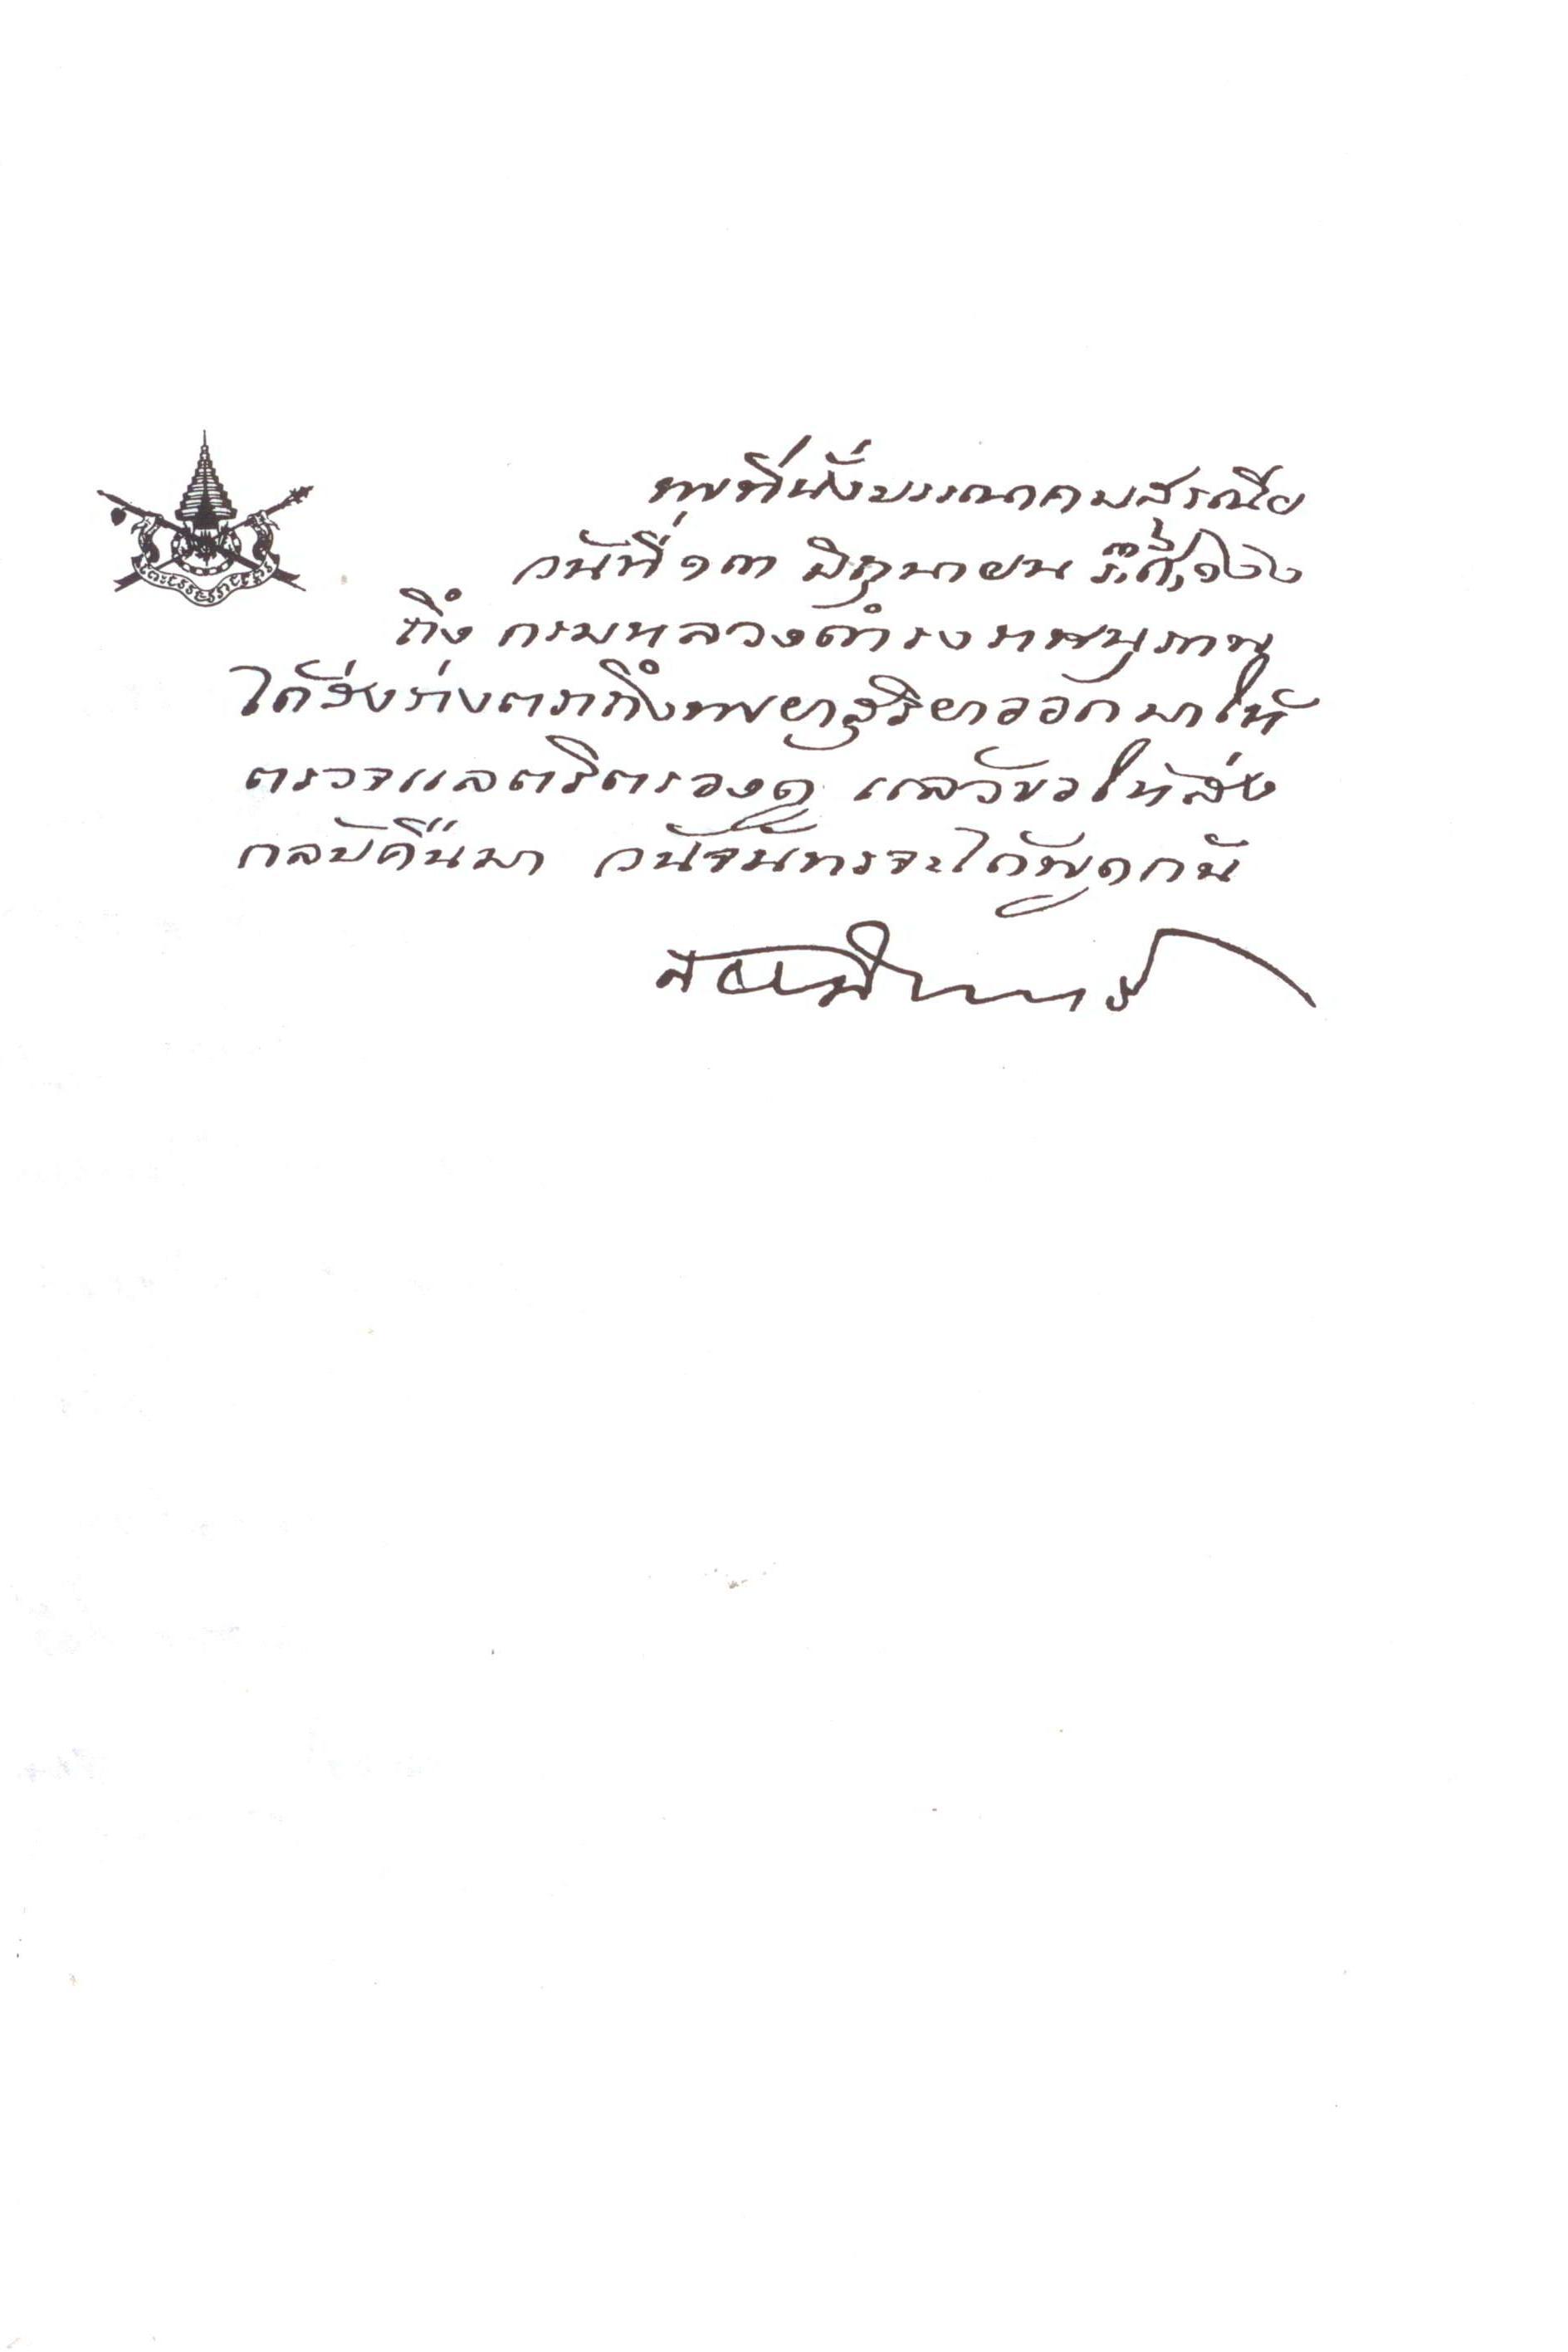 พที่นั่งบรรณาคมสรณีย
วันที่ ๑๓ มิถุนายน ร,ศ,๑๒๒
ถึง กรมหลวงดำรงราชานุภาพ
ได้ส่งร่างตราถึงพยาสุริยาออกมาให้
ตรวจแลตริตรองดู แล้วขอให้ส่ง
กลับคืนมา วันจันทรจะได้พูดกัน
สยามินทร์